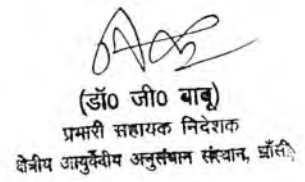 (डॉ0 जी0 बाबू)
प्रभारी सहायक निदेशक
क्षेत्रीय आयुर्वेदीय अनुसंधान संस्थान, झाँसी